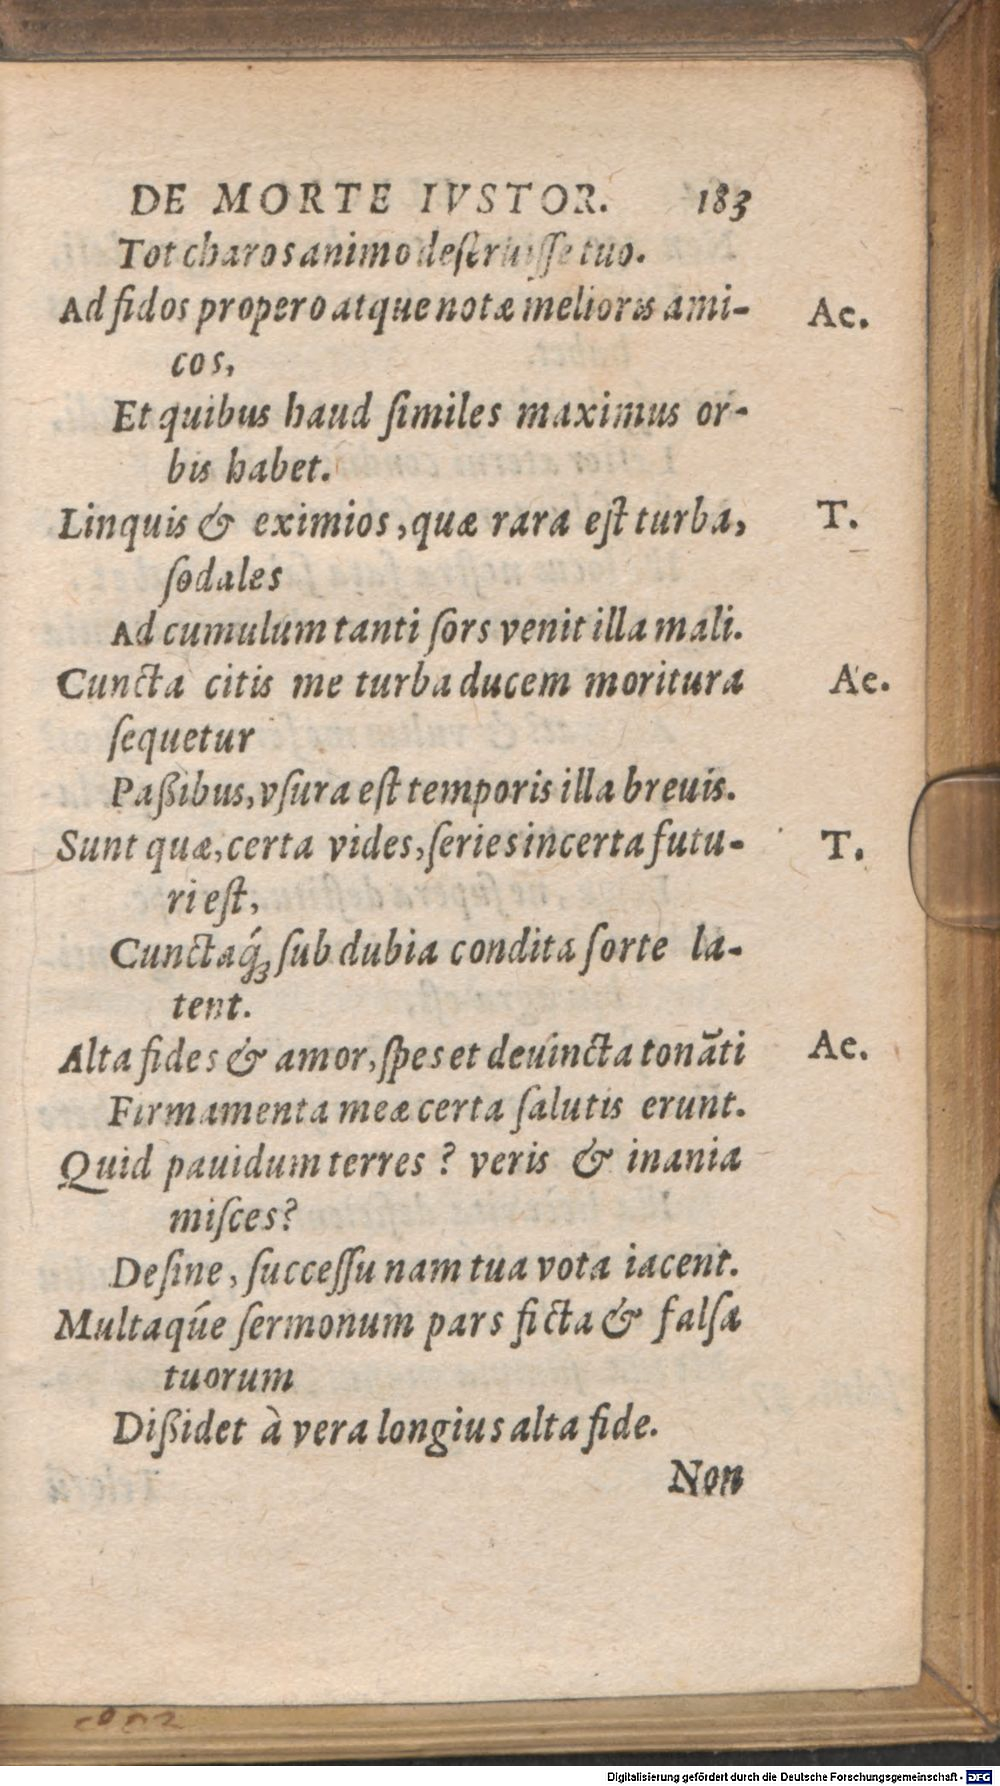 DE MORTE IVSTOR. 183
Tot charos animo deſeruiſſe tuo.
Ad fidos propero atque notæ melioris ami- Ac.
cos,
Et quibus haud ſimiles maximus or-
bis habet.
Linquis & eximios, quæ rara eſt turba, T.
ſodales
Ad cumulum tanti ſors venit illa mali.
Cuncta citis me turba ducem moritura Ae.
ſequetur
Paßibus, vſura eſt temporis illa breuis.
Sunt quæ, certa vides, ſeries incerta futu- T.
ri eſt,
Cunctaq́ꝫ ſub dubia condita ſorte la-
tent.
Alta fides & amor, ſpes et deuincta tonãti Ae.
Firmamenta meæ certa ſalutis erunt.
Quid pauidum terres? veris & inania
miſces?
Deſine, ſucceſſu nam tua vota iacent.
Multaq́ue ſermonum pars ficta & falſa
tuorum
Dißidet à vera longius alta fide.
Non
Digitalisierung gefördert durch die Deutsche Forschungsgemeinschaft - DFG